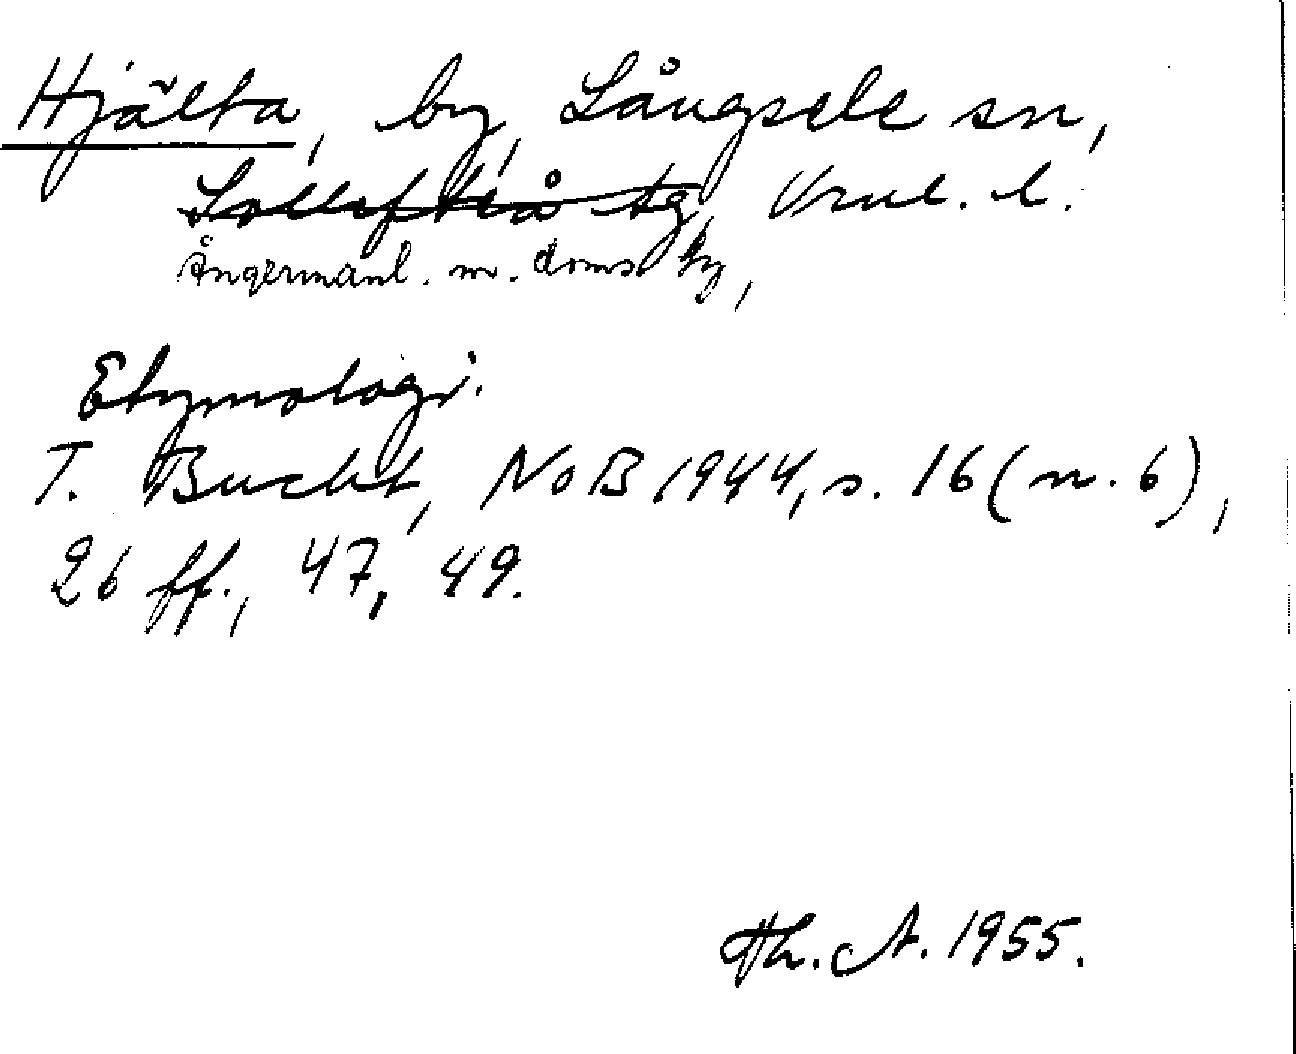 Hjälta, by, Långsele sn,
Sollefteå tg, Vnl. l.
Ångermanl. m. doms tg,
Etymologi.
T. Bucht, NoB 1944, s. 16 (n. 6),
26 ff., 47, 49.
Th. A. 1955.